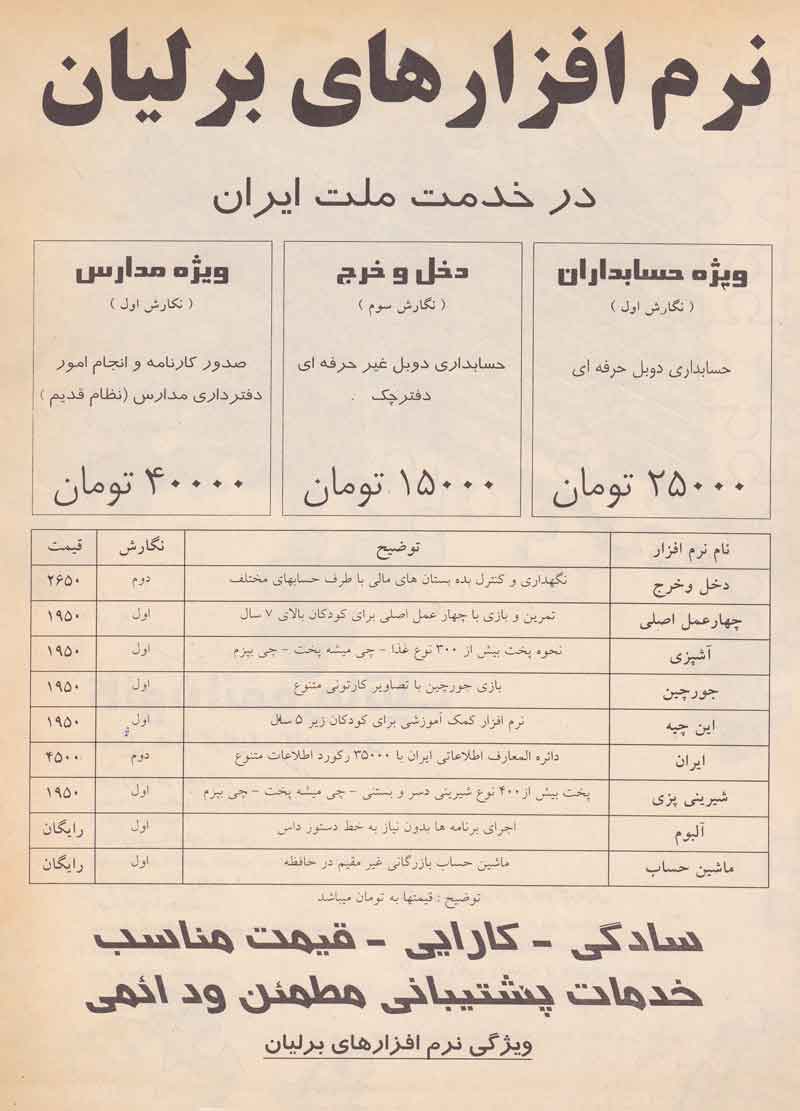 نرم افزارهای برلیان
در خدمت ملت ایران
ویژه حسابداران
( نگارش اول )
حسابداری دوبل حرفه ای
۲۵۰۰۰ تومان
دخل و خرج
( نگارش سوم )
حسابداری دوبل غیر حرفه ای
دفترچک
۱۵۰۰۰ تومان
ویژه مدارس
( نگارش اول )
صدور کارنامه و انجام امور
دفترداری مدارس (نظام قدیم )
۴۰۰۰۰ تومان
نام نرم افزار توضیح نگارش قیمت
دخل وخرج نگهداری و کنترل بده بستان های مالی با طرف حسابهای مختلف دوم ۲۶۵۰
چهارعمل اصلی تمرین و بازی با چهار عمل اصلی برای کودکان بالای ۷ سال اول ۱۹۵۰
آشپزی نحوه پخت بیش از ۳۰۰ نوع غذا - چی میشه پخت - چی بپزم اول ۱۹۵۰
جورچین بازی جورچین با تصاویر کارتونی متنوع اول ۱۹۵۰
این چیه نرم افزار کمک آموزشی برای کودکان زیر ۵ سال اول ۱۹۵۰
ایران دائره المعارف اطلاعاتی ایران با ۳۵۰۰۰ رکورد اطلاعات متنوع دوم ۴۵۰۰
شیرینی پزی پخت بیش از۴۰۰ نوع شیرینی دسر و بستنی - چی میشه پخت - چی بپزم اول ۱۹۵۰
آلبوم اجرای برنامه ها بدون نیاز به خط دستور داس اول رایگان
ماشین حساب ماشین حساب بازرگانی غیر مقیم در حافظه اول رایگان
توضیح : قیمتها به تومان میباشد
سادگی - کارایی - قیمت مناسب
خدمات پشتیبانی مطمئن ود ائمی
ویژگی نرم افزارهای برلیان